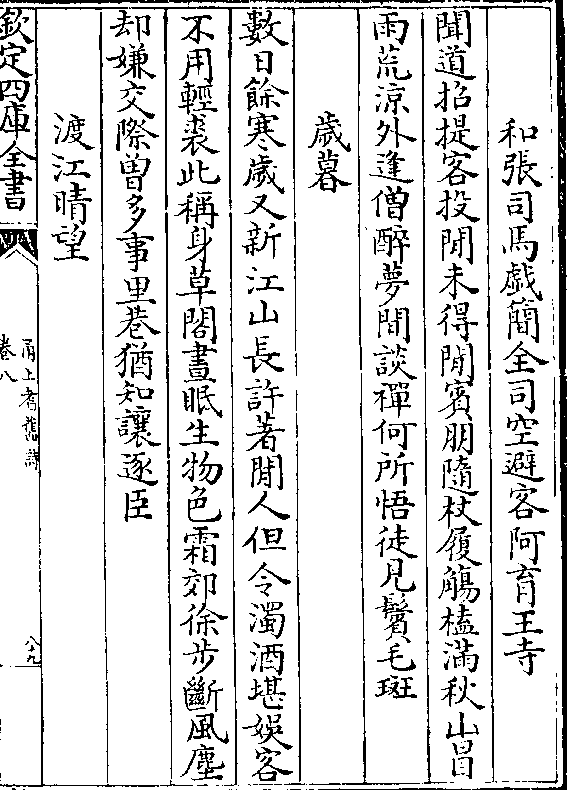 和張司馬戯簡全司空避客阿育王寺
聞道招提客投閒未得閒賓朋隨杖履觴榼滿秋山冒
雨荒涼外逢僧醉夢間談禪何所悟徒見鬢毛斑
歲暮
數日餘寒歲又新江山長許著閒人但令濁酒堪娛客
不用輕裘此稱身草閣晝眠生物色霜郊徐步斷風塵
却嫌交際曽多事里巷猶知讓逐臣
渡江晴望
欽定四庫全書
甬上耆舊詩
卷八